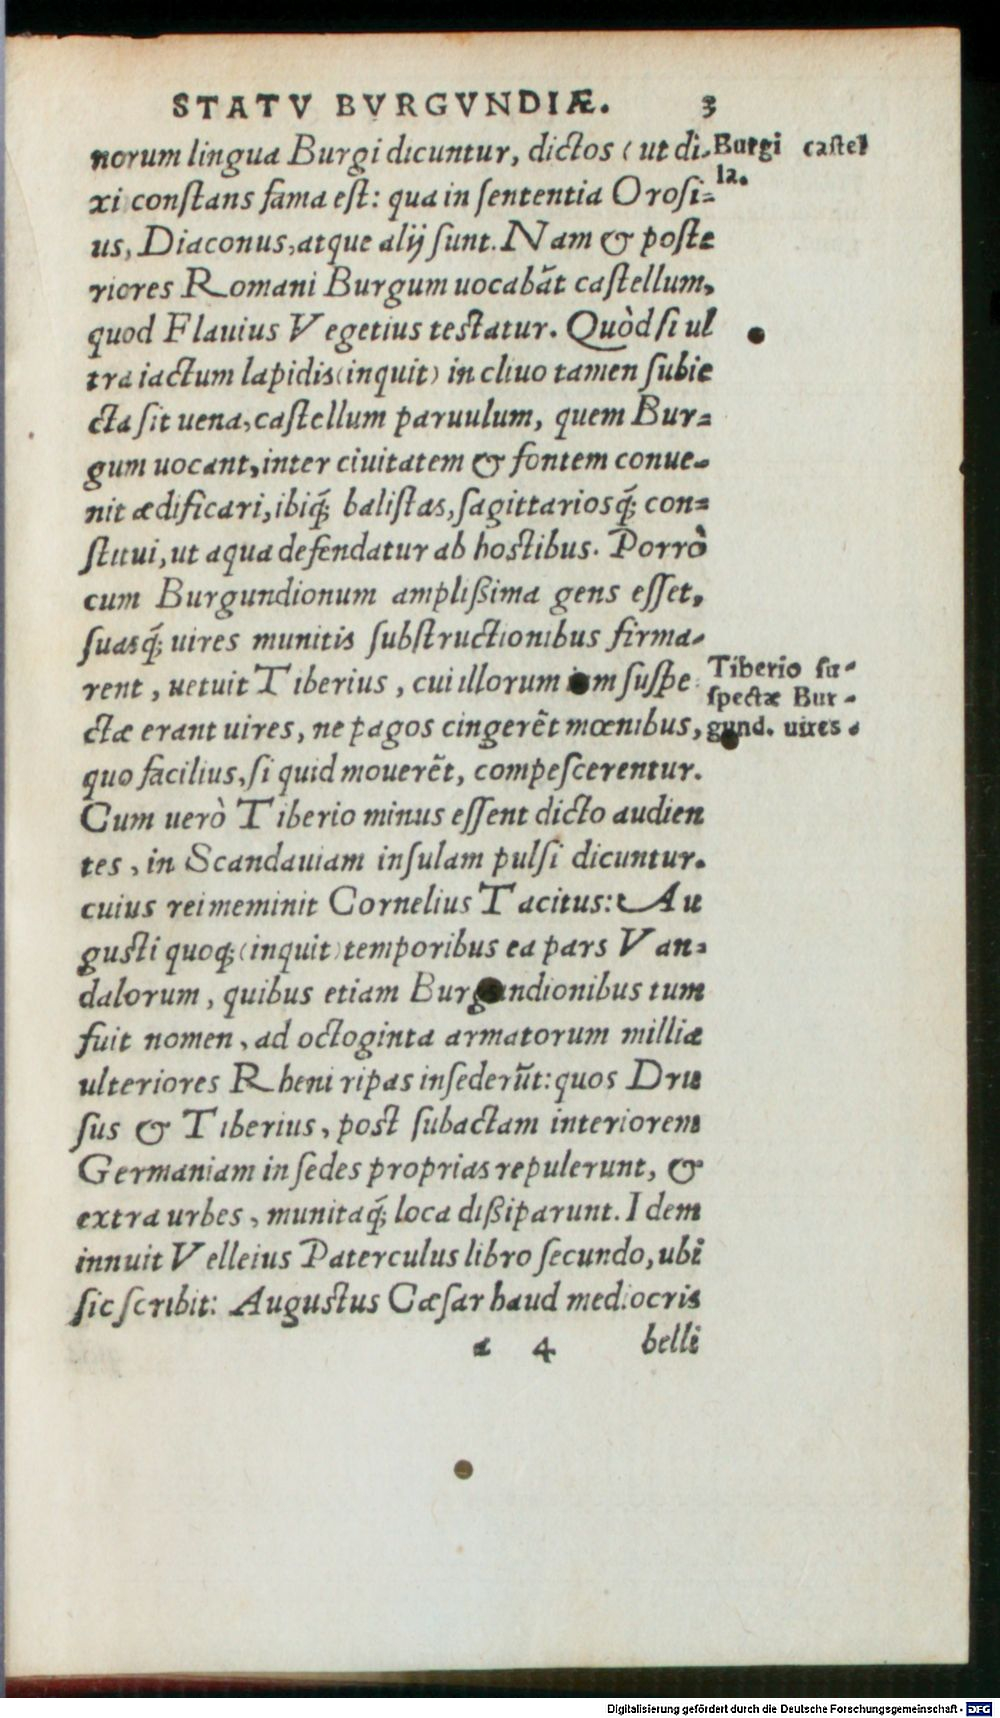 STATV BVRGVNDIÆ. 3
norum lingua Burgi dicuntur, dictos (ut di-
Burgi castel
la.
xi constans fama est: qua in sententia Orosi=
us, Diaconus, atque alij sunt. Nam & poste
riores Romani Burgum uocabãt castellum,
quod Flauius Vegetius testatur. Quòd si ul
tra iactum lapidis (inquit) in cliuo tamen subie
cta sit uena, castellum paruulum, quem Bur=
gum uocant, inter ciuitatem & fontem conue-
nit ædificari, ibiq́; balistas, sagittariosq́; con=
stitui, ut aqua defendatur ab hostibus. Porrò
cum Burgundionum amplißima gens esset,
suasq́; uires munitis substructionibus firma-
rent, uetuit Tiberius, cui illorum iam suspe
ctæ erant uires, ne pagos cingerẽt mœnibus,
Tiberio su-
spectæ Bur-
gund. uires.
quo facilius, si quid mouerẽt, compescerentur.
Cum uerò Tiberio minus essent dicto audien
tes, in Scandauiam insulam pulsi dicuntur.
cuius rei meminit Cornelius Tacitus: Au
gusti quoq; (inquit) temporibus ea pars Van=
dalorum, quibus etiam Burgundionibus tum
fuit nomen, ad octoginta armatorum millia
ulteriores Rheni ripas insederũt: quos Dru
sus & Tiberius, post subactam interiorem
Germaniam in sedes proprias repulerunt, &
extra urbes, munitaq́; loca dißiparunt. Idem
innuit Velleius Paterculus libro secundo, ubi
sic scribit: Augustus Cæsar haud mediocris
a 4 belli
Digitalisierung gefördert durch die Deutsche Forschungsgemeinschaft - DFG